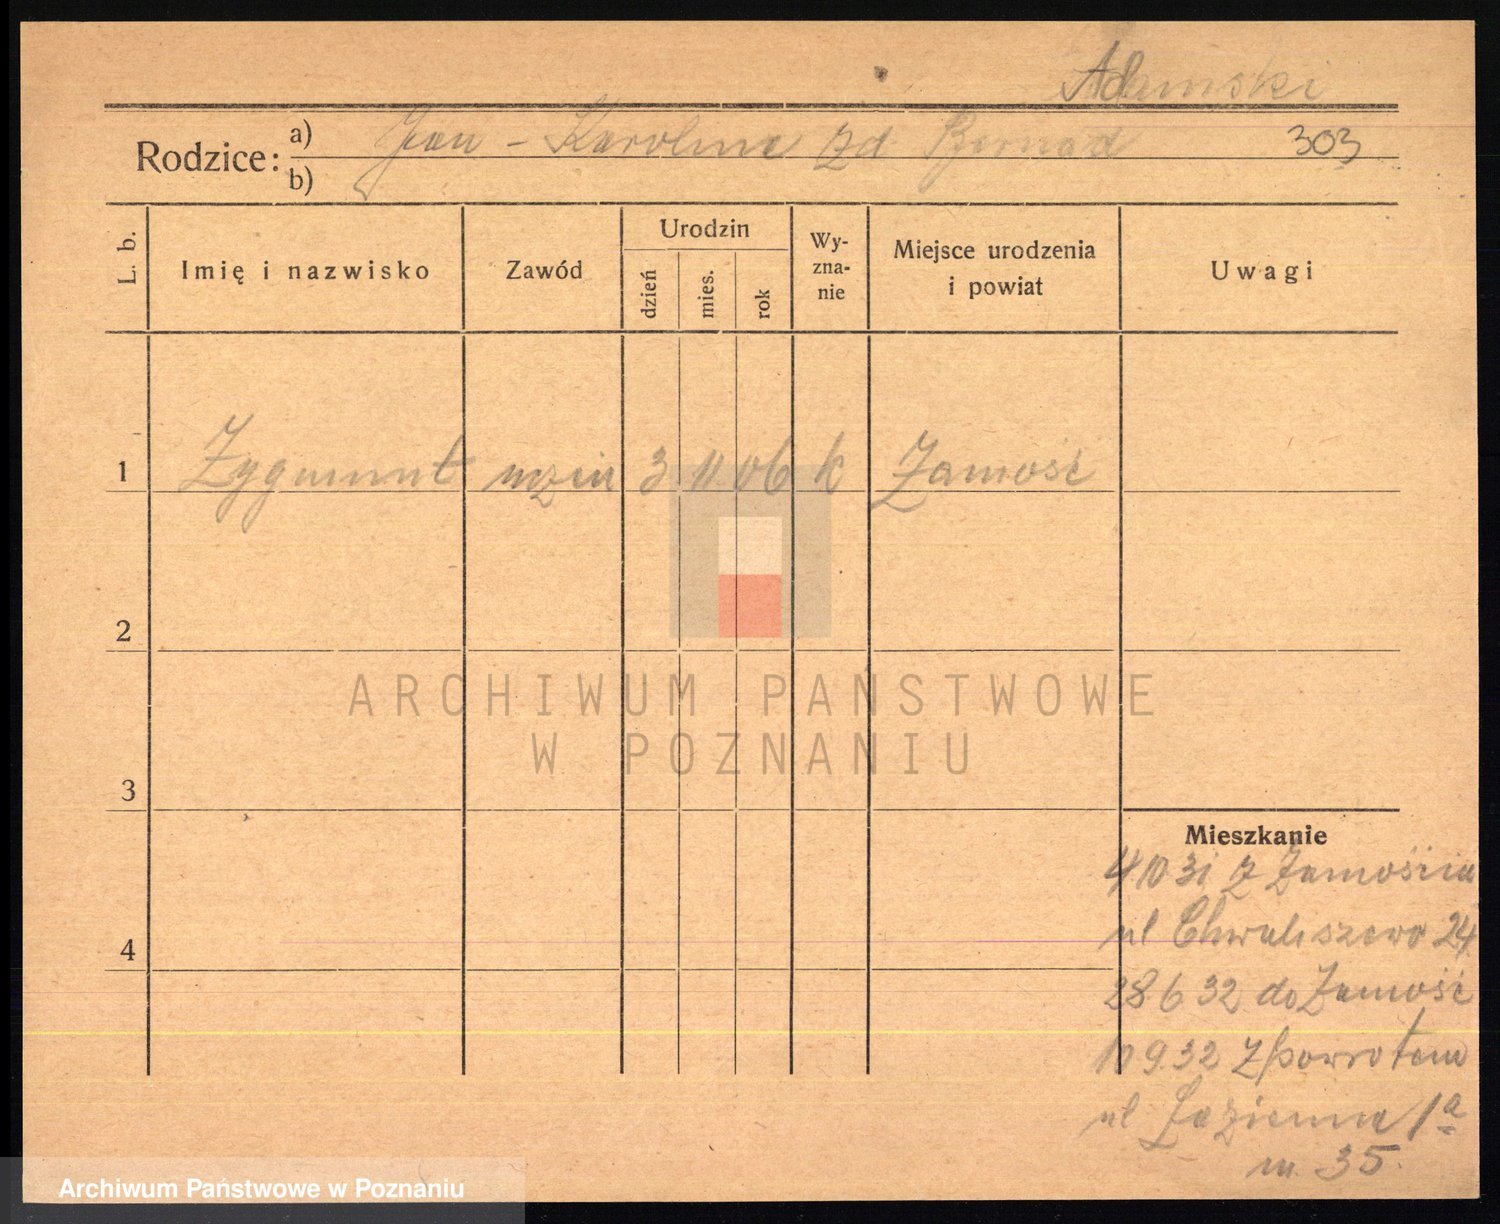 Adamski
Rodzice: a) Jan - Karolina zd Bernad 303
b)
L. b.
Imię i nazwisko
Zawód
Urodzin
dzień
mies.
rok
Wy-
zna-
nie
Miejsce urodzenia
i powiat
Uwagi
1 Zygmunt 3 11 06 k Zamość
2
3
4
Mieszkanie
4 10 31 z Zamościa
ul Chwaliszewo 24
28 6 32 do Zamość
10 9 32 z powrotem
ul Łazienna 1a
m. 35.
ARCHIWUM PAŃSTWOWE
W POZNANIU
Archiwum Państwowe w Poznaniu